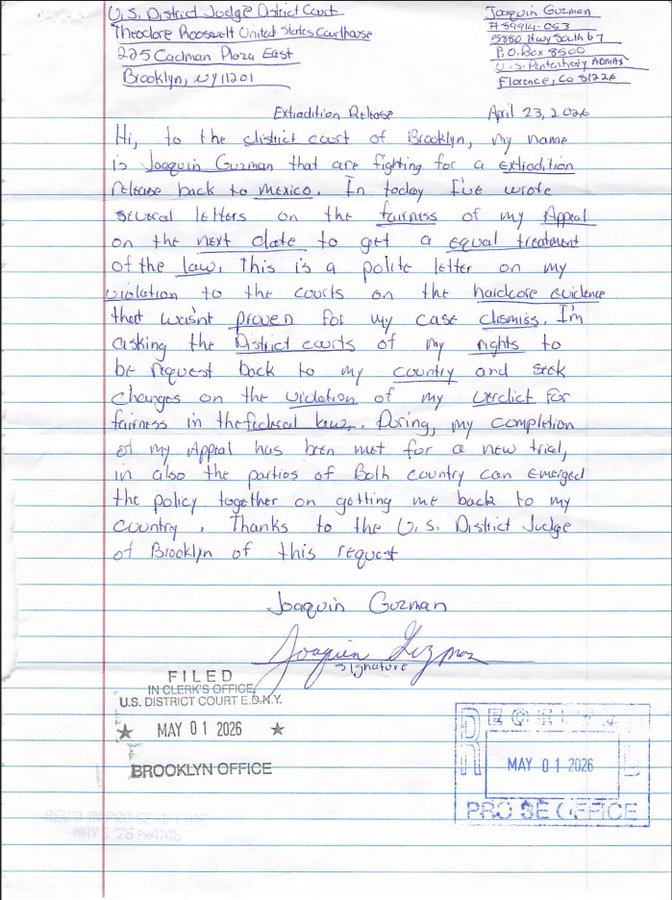 U.S. District Judge District Court
Theodore Roosevelt United States Courthouse
225 Cadman Plaza East
Brooklyn, NY 11201
Joaquin Guzman
# 89914-053
5880 Hwy South 67
P.O. Box 8500
U.S. Penitentiary ADMAX
Florence, CO 81226
Extradition Release
April 23, 2026
Hi, to the district court of Brooklyn, my name
is Joaquin Guzman that are fighting for a extradition
release back to mexico. In today I've wrote
several letters on the fairness of my Appeal
on the next date to get a equal treatment
of the law. This is a polite letter on my
violation to the courts on the hardcore evidence
that wasn't proven for my case dismiss. I'm
asking the District courts of my rights to
be request back to my country and seek
changes on the violation of my verdict for
fairness in the federal law. During, my completion
of my Appeal has been met for a new trial,
in also the parties of Both country can emerged
the policy together on getting me back to my
country. Thanks to the U.S. District Judge
of Brooklyn of this request
Joaquin Guzman
Joaquin Guzman
signature
FILED
IN CLERK'S OFFICE
U.S. DISTRICT COURT E.D.N.Y.
★ MAY 01 2026 ★
BROOKLYN OFFICE
MAY 01 2026
PRO SE OFFICE
REC'D IN PRO SE OFFICE